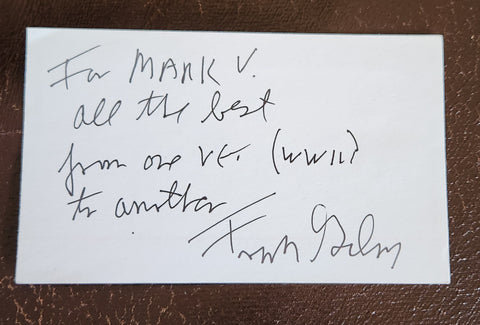 For MARK V.
all the best
from one VET. (WWII)
to another
Frank